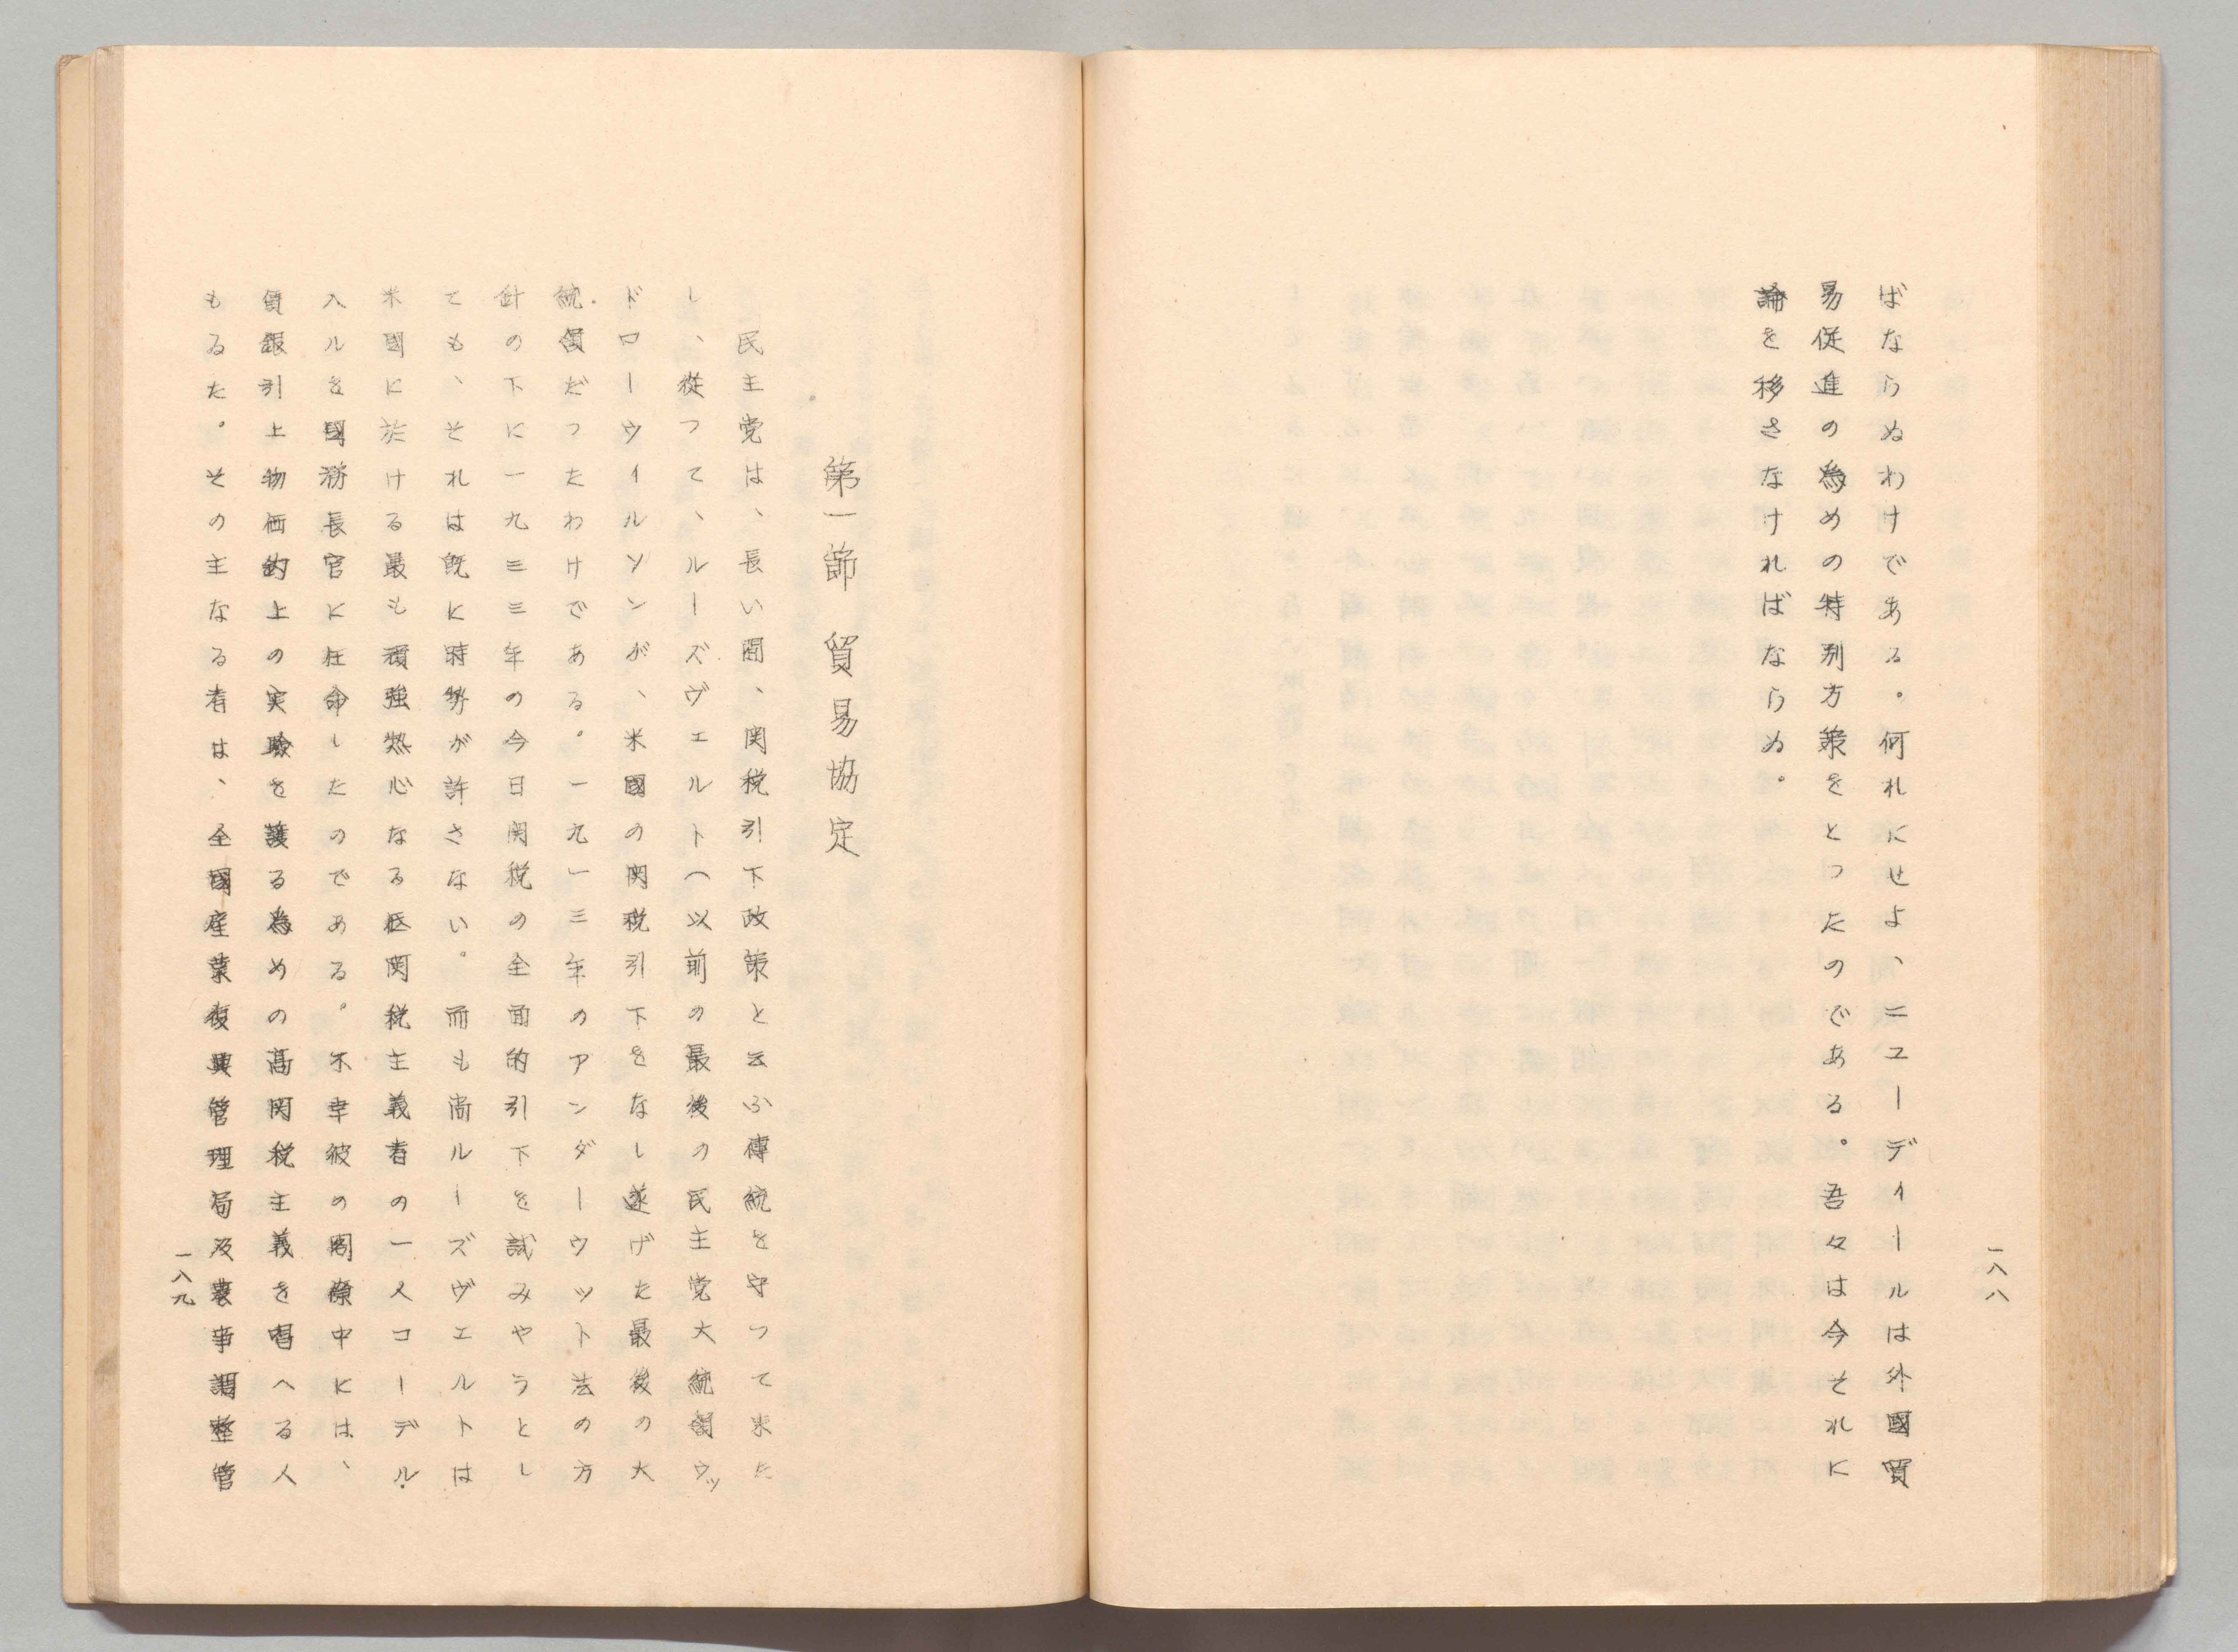 ばならぬわけである。何れにせよ、ニユーディールは外國貿
易促進の為めの特別方策をとつたのである。吾々は今それに
論を移さなければならぬ。
一八八
第一節　貿易協定
民主党は、長い間、関税引下政策と云ふ傳統を守つて来た
し、従つて、ルーズヴェルト（以前の最後の民主党大統領ウッ
ドローウイルソンが、米國の関税引下をなし遂げた最後の大
統領だつたわけである。一九一三年のアンダーウット法の方
針の下に一九三三年の今日関税の全面的引下を試みやうとし
ても、それは既に時勢が許さない。而も尚ルーズヴエルトは
米國に於ける最も頑強熱心なる低関税主義者の一人コーデル・
ハルを國務長官に任命したのである。不幸彼の閣僚中には、
賃銀引上物価釣上の実験を護る為めの高関税主義を唱へる人
もゐた。その主なる者は、全國産業復興管理局及農事調整管
一八九